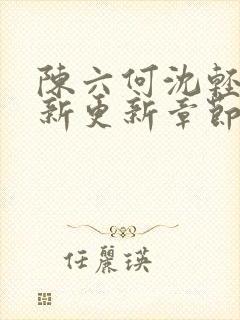 陳六何沈輕
新更新章節
任麗瑛